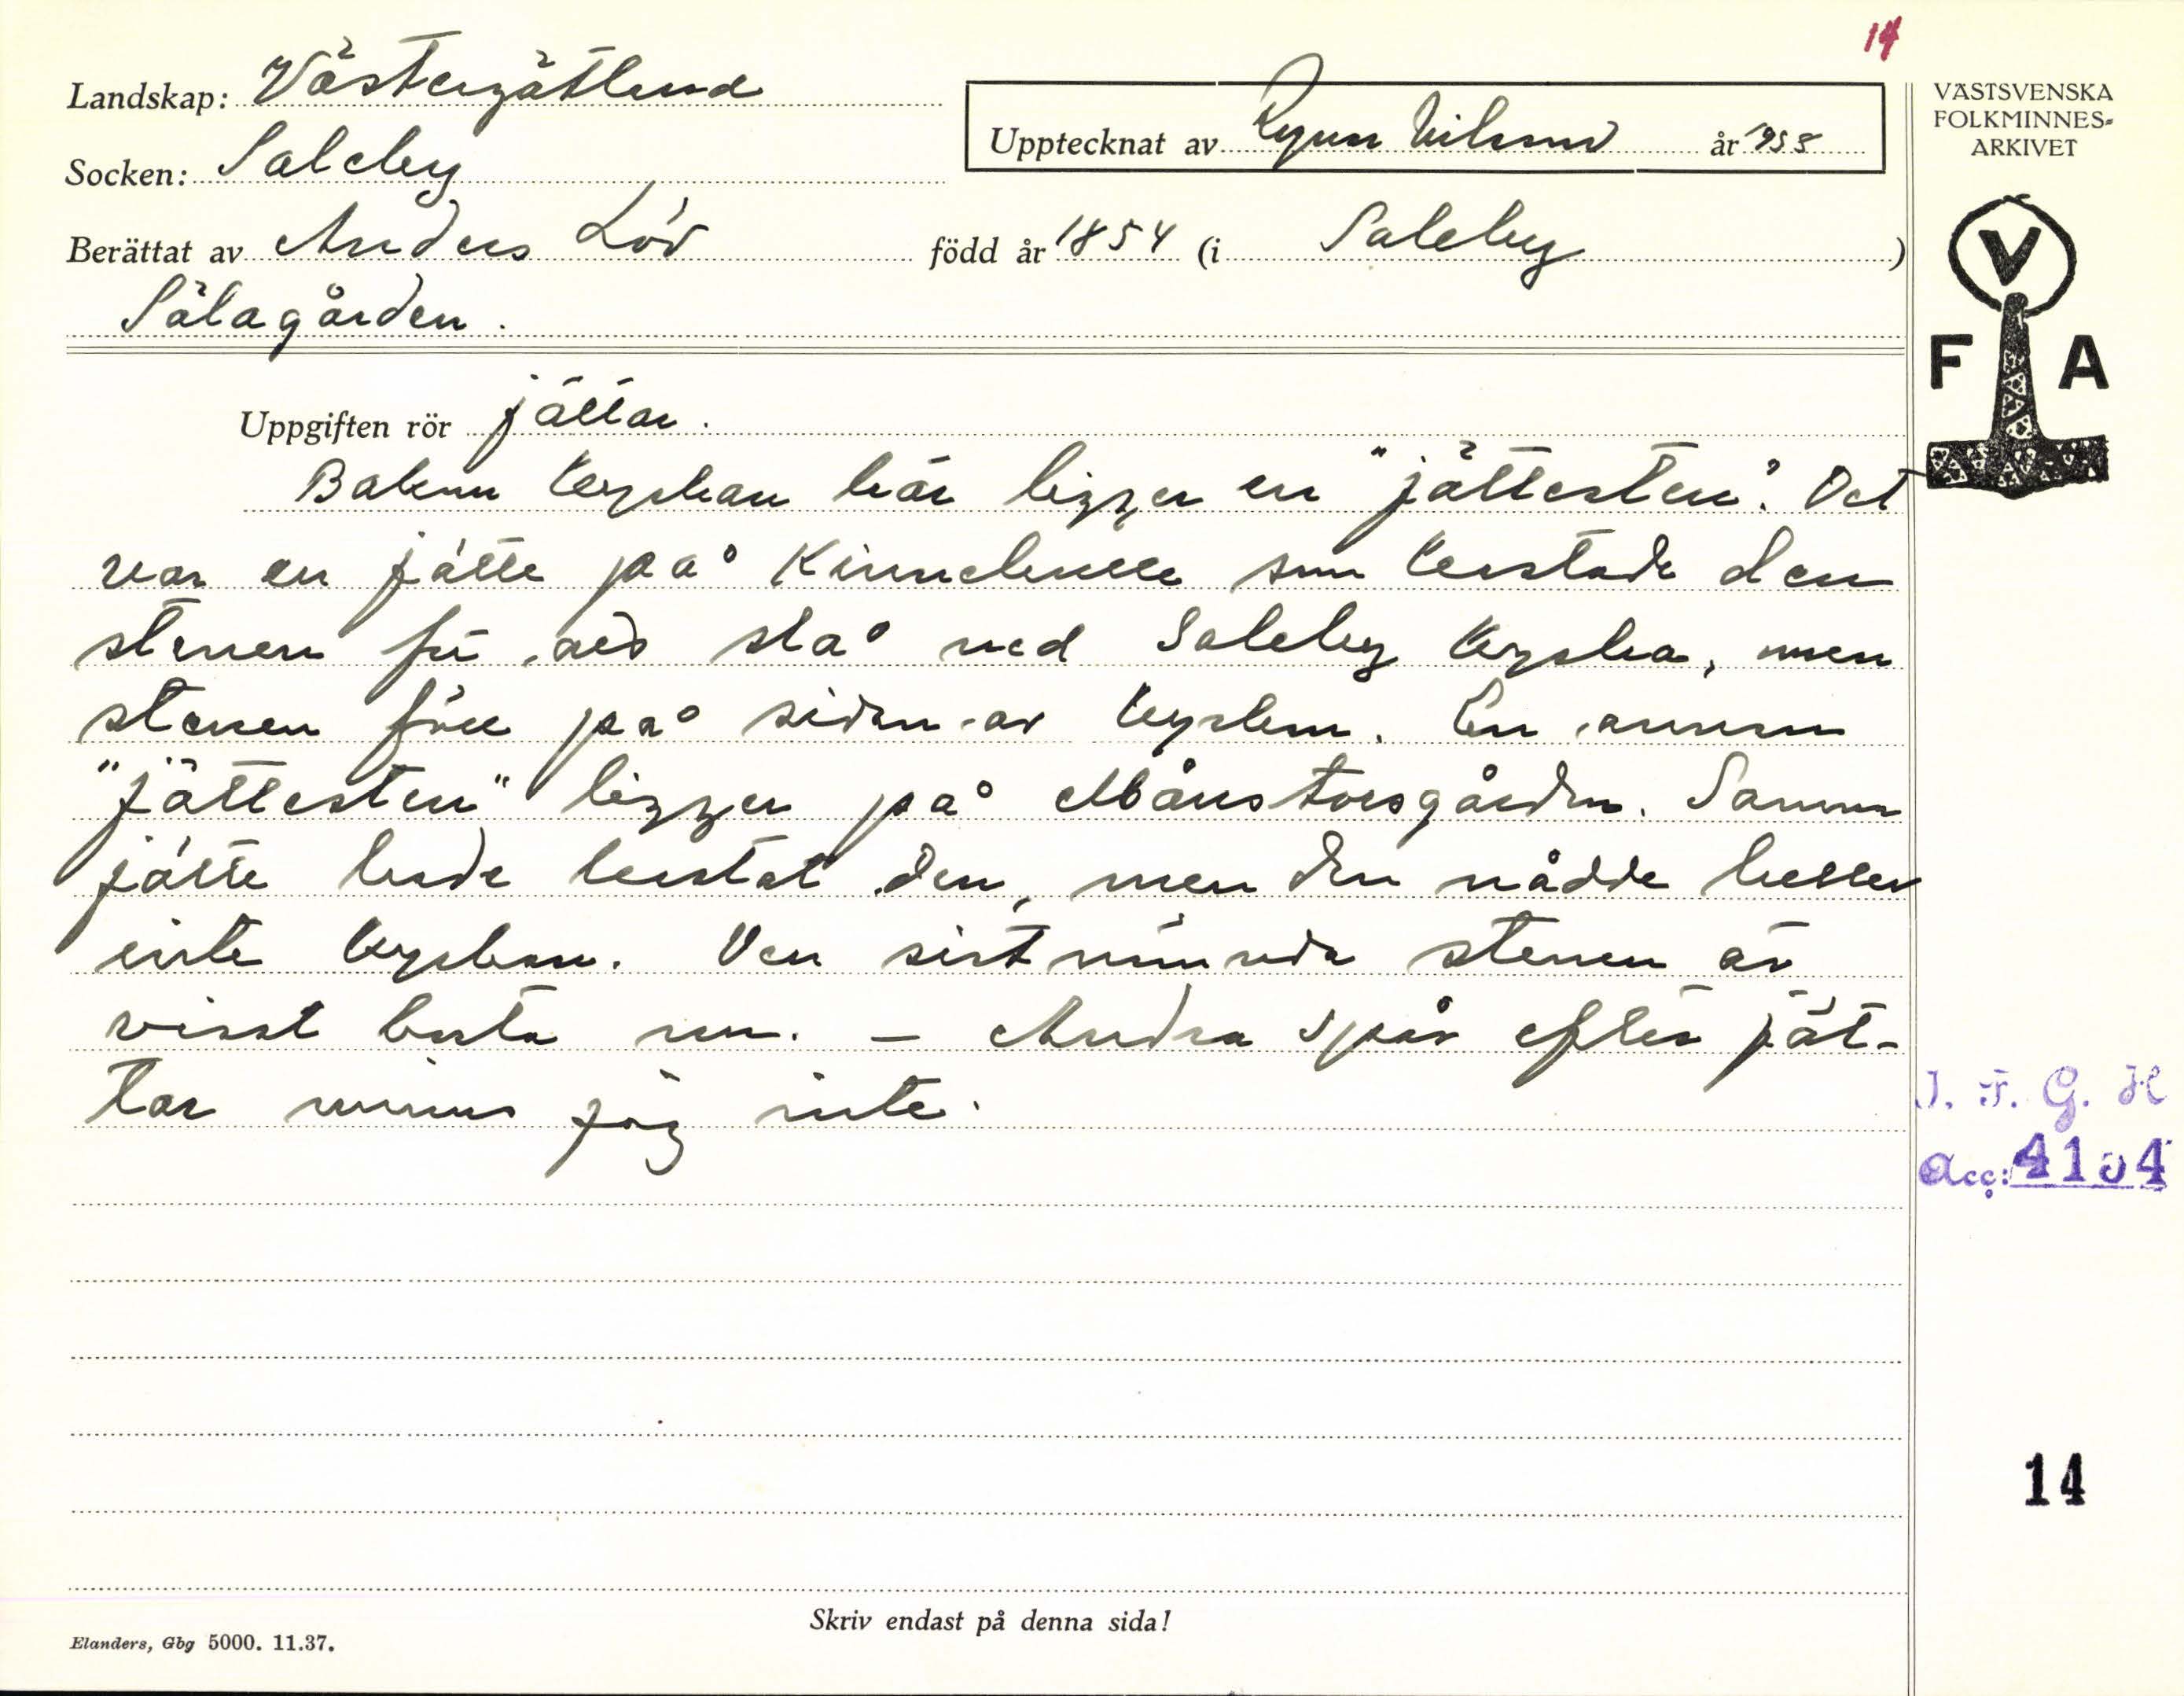 14
Landskap: Västergötland
Upptecknat av Ragnar Nilsson år 1938
VÄSTSVENSKA
FOLKMINNES-
ARKIVET
Socken: Saleby
Berättat av Anders Löv född år 1854 (i Saleby)
Sälagården.
V
F A
Uppgiften rör jättar.
Bakom kyrkan här ligger en "jättesten". Det
var en jätte på Kinnekulle som kastade den
stenen för att slå ned Saleby kyrka, men
stenen föll på sidan av kyrkan. En annan
"jättesten" ligger på Månstorsgården. Samma
jätte hade kastat den, men den nådde heller
inte kyrkan. Den sistnämnda stenen är
visst borta nu. – Andra spår efter jät-
tar minns jag inte.
I. F. G. H
Acc: 4104
14
Skriv endast på denna sida!
Elanders, Gbg 5000. 11.37.